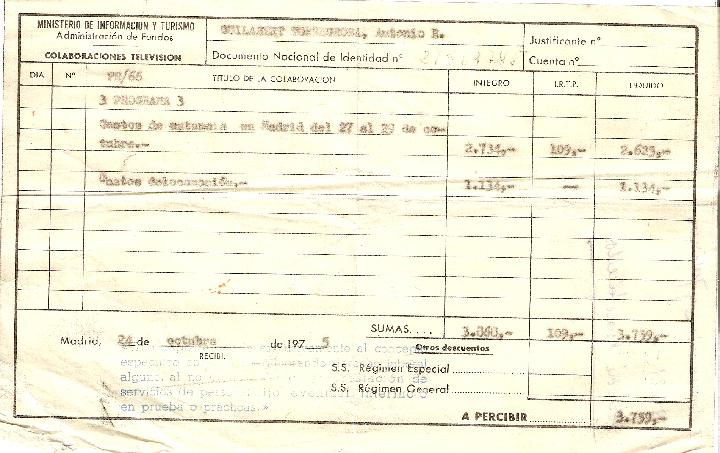 MINISTERIO DE INFORMACION Y TURISMO
Administración de Fondos
COLABORACIONES TELEVISION
Antonio R.
Documento Nacional de Identidad nº
Justificante nº
Cuenta nº
DIA Nº PR/66 TITULO DE LA COLABORACION INTEGRO I.R.T.P. LIQUIDO
3 PROGRAMA 3
Gastos de estancia en Madrid del 27 al 29 de oc-
tubre.- 2.734,- 109,- 2.625,-
Gastos de locomoción.- 1.134,- -- 1.134,-
SUMAS.... 3.868,- 109,- 3.759,-
Madrid, 24 de octubre de 197 5
Otros descuentos
RECIBI.
al concepto
S.S. Régimen Especial
alguno, al no
S.S. Régimen General
servicios de
en prueba o prácticas.»
A PERCIBIR 3.759,-